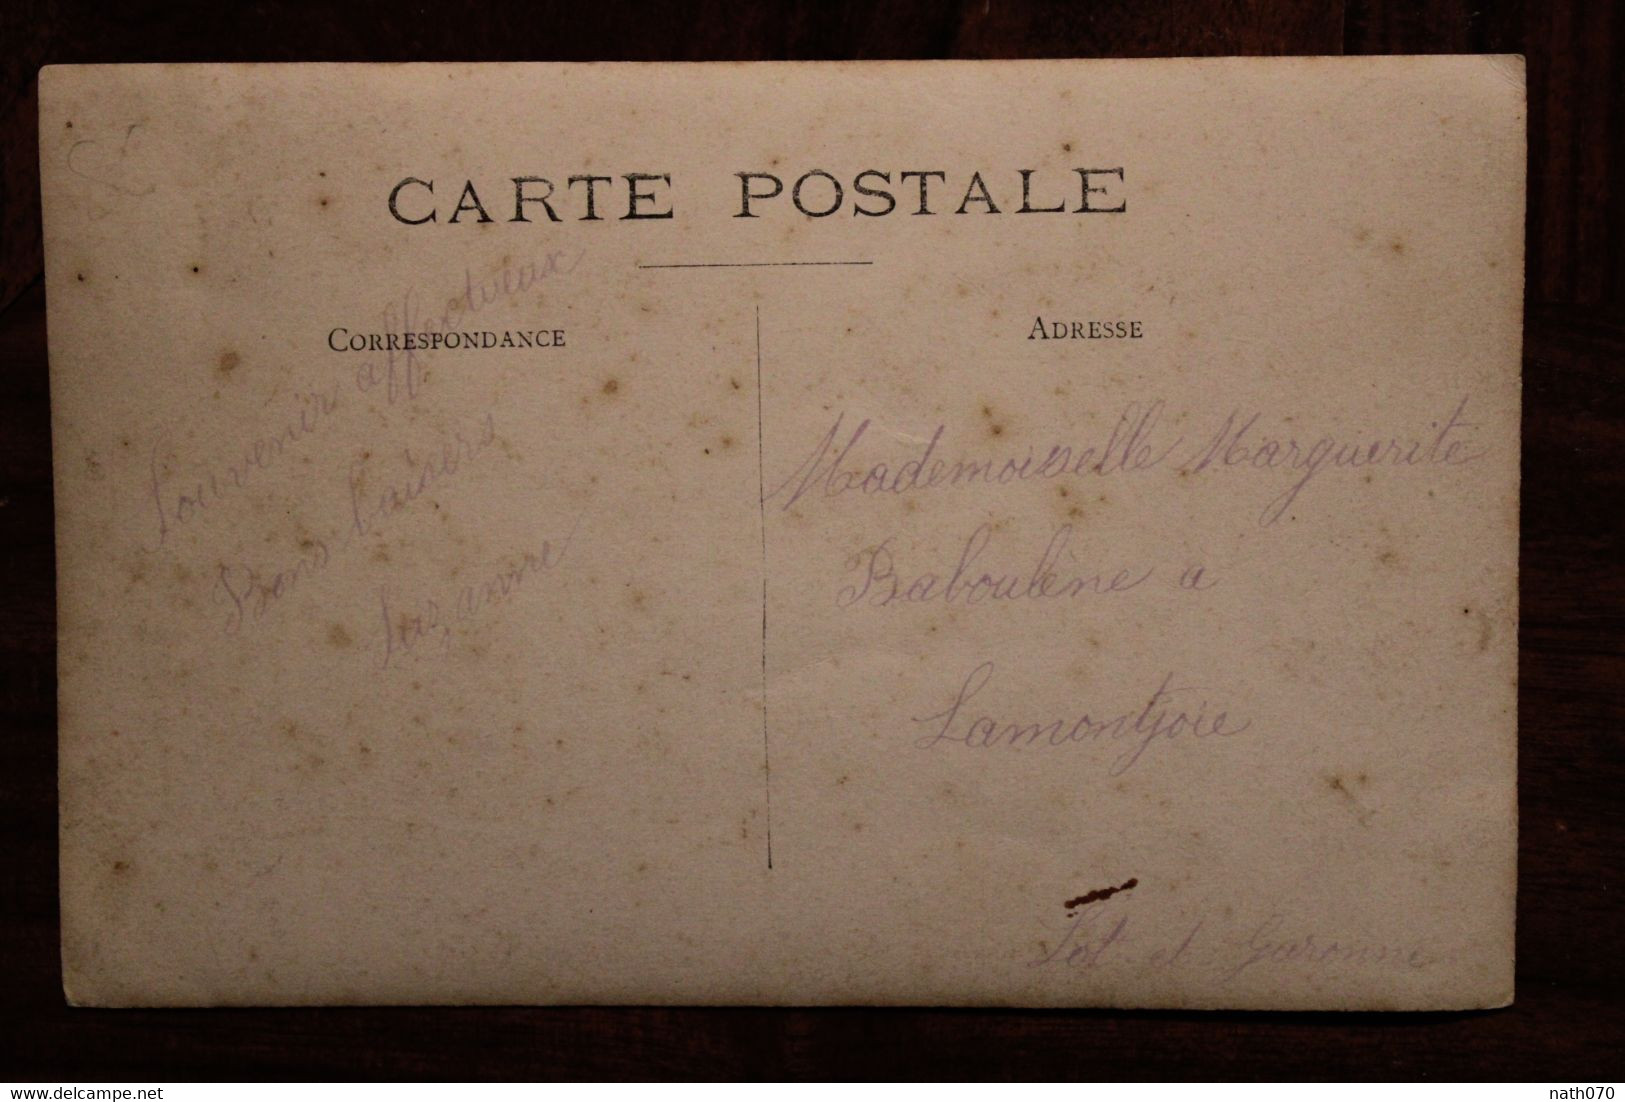 CARTE POSTALE
CORRESPONDANCE
Souvenir affectueux
Bons baisers
Suzanne
ADRESSE
Mademoiselle Marguerite
Baboulène a
Lamontjoie
Lot et Garonne
delcampe.net
nath070